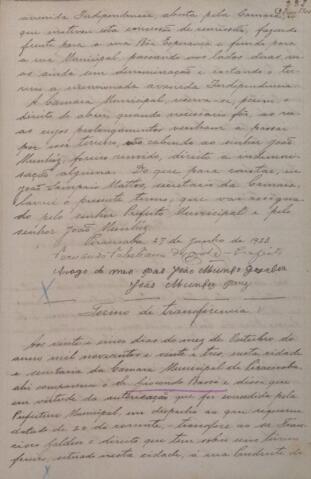 avenida Independencia, aberta pela Camara, o
que motivou esta concessão de remissão, fazendo
frente para a rua Bôa Esperança e fundo para
a rua Municipal, passando nos lados duas ruas
ainda sem denominação e cortando o terreno
a mencionada avenida Independencia.
A Camara Municipal reserva-se, porém, o
direito de abrir, quando necessario fôr, as ruas
cujos prolongamentos venham a passar
por esse terreno, não cabendo ao senhor João
Munhóz, foreiro remido, direito a indemnisação
alguma. Do que para constar, eu
João Sampaio Mattos, secretario da Camara,
lavrei o presente termo, que vae assignado
pelo senhor Prefeito Municipal e pelo
senhor João Munhóz.
Piracicaba 27 de Junho de 1923
João Munhoz
Termo de transferencia
Aos vinte e cinco dias do mez de Outubro do
anno mil novecentos e vinte e tres, nesta cidade
e secretaria da Camara Municipal de Piracicaba,
ahi compareceu o sr. Licundo Basso e disse que
em virtude da autorisação que foi concedida pela
Prefeitura Municipal, em despacho ao seu requerimento
datado de 20 do corrente, transfere ao sr.
o direito que tem sobre um terreno
foreiro, situado nesta cidade, á rua